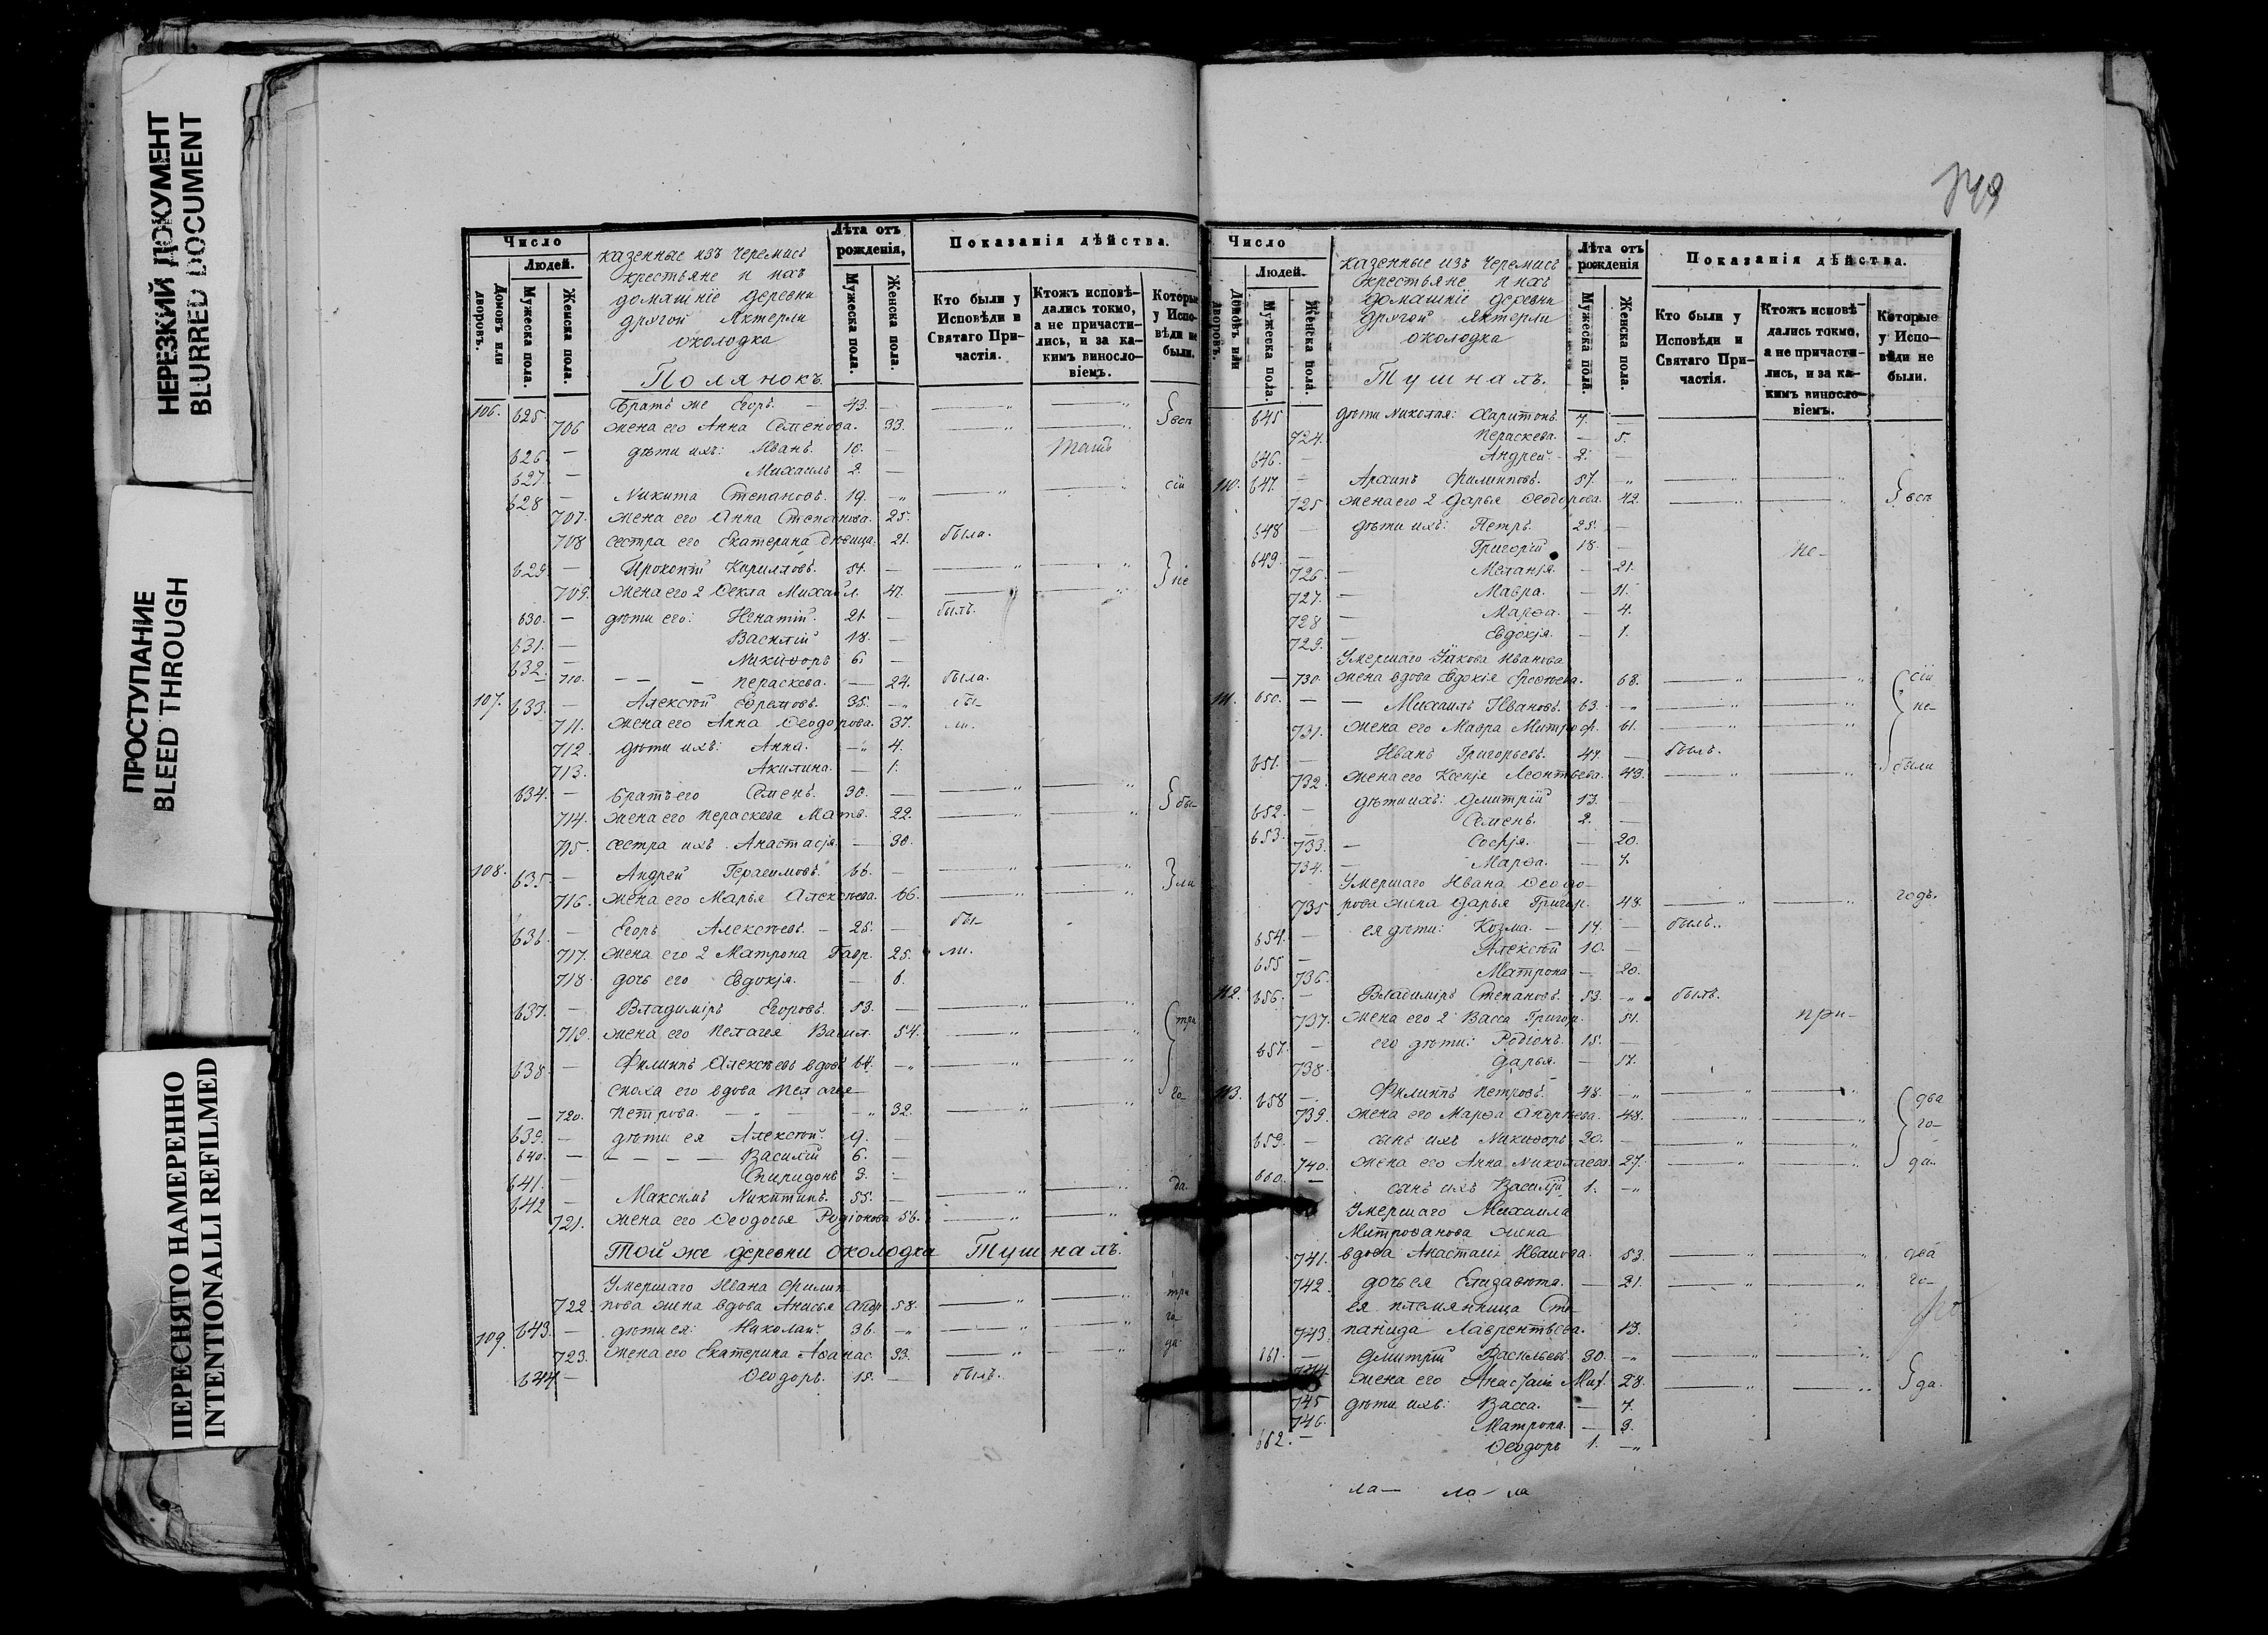 НЕРЕЗКИЙ ДОКУМЕНТ
BLURRED DOCUMENT
ПРОСТУПАНИЕ
BLEED THROUGH
ПЕРЕСНЯТО НАМЕРЕННО
INTENTIONALLI REFILMED
Число
Людей.
Домовъ или дворовъ.
Мужеска пола.
Женска пола.
казенные изъ черемисъ
крестьяне и ихъ
домашніе деревни
другой Яктерли
околодка
Полянокъ.
Лѣта отъ рожденія,
Мужеска пола.
Женска пола.
Показанія дѣйства.
Кто были у Исповѣди и Святаго Причастія.
Ктожъ исповѣ-
дались токмо,
а не причасти-
лись, и за ка-
кимъ виносло-
віемъ.
Которые
у Испо-
вѣди не
были.
106. 625. Братъ же Егоръ. — 43. —
706 жена его Анна Семенова. 33. всѣ
626. — дѣти ихъ: Иванъ. 10. —
627. — Михаилъ 2. —
628 — Никита Степановъ. 19. сіи
707. жена его Анна Степанова. 25.
708 сестра его Екатерина дѣвица. 21. была.
629 — Прокопій Кириловъ. 51. —
709. жена его 2 Ѳекла Михайл. 47. не
630. — дѣти его: Игнатій. 21. — былъ.
631. — Василій 18. —
632. — Никифоръ 6. —
710. — — — Пераскева. — 24. была.
107. 633. — Алексѣй Ефремовъ. 35. бы-
711. жена его Анна Ѳеодорова. 37. ли.
712. дѣти ихъ: Анна. 4.
713. Акилина. — 1.
634. — братъ его Семенъ. 30. —
714. жена его Пераскева Матв. 22. бы-
715. сестра ихъ Анастасія. — 30.
108. 635. — Андрей Герасимовъ. 66. —
716. жена его Марья Алексѣева. 66. ли
636. — Егоръ Алексѣевъ. — 25. — бы-
717. жена его 2 Матрона Гавр. 25. ли.
718. дочь его Евдокія. — 6.
637. — Владиміръ Егоровъ. 53. —
719. жена его Пелагея Васил. 54. три
638. — Филиппъ Алексѣевъ вдовъ 64.
сноха его вдова Пелагея
— 720. Петрова. 32. го-
639. — дѣти ея Алексѣй. 9. —
640. — — — — — Василій 6. —
641. — Спиридонъ 3. —
642 — Максимъ Никитинъ. 55. — да.
721. жена его Ѳеодосья Родіонова 56.
Той же деревни околодка Тушналъ.
Умершаго Ивана Филип
722. пова жена вдова Анисья Андр. 58. три
109. 643. — дѣти ея: Николай. 36. го-
723. жена его Екатерина Аѳанас. 33. да.
644 — Ѳеодоръ. 15. — былъ.
Число
Людей.
Домовъ или дворовъ.
Мужеска пола.
Женска пола.
казенные изъ черемисъ
крестьяне и ихъ
домашніе деревни
другой Яктерли
околодка
Тушналъ.
Лѣта отъ рожденія
Мужеска пола.
Женска пола.
Показанія дѣйства.
Кто были у Исповѣди и Святаго Причастія.
Ктожъ исповѣ
дались токмо,
а не причасти-
лись, и за ка-
кимъ винносло-
віемъ.
Которые
у Испо-
вѣди не
были.
645 дѣти Николая: Харитонъ. 7. —
724. Пераскева. — 5.
646. — Андрей. — 2. —
110. 647. — Архипъ Филипповъ. 57.
725. жена его 2 Дарья Ѳеодорова. 42. всѣ
648 — дѣти ихъ: Петръ. 25. —
649. — Григорій 18. — не-
726. — Меланія. — 21.
727. — Мавра. — 11.
728 — Марѳа. — 4.
729. — Евдокія. — 1.
Умершаго Іакова Иванова
— 730. жена вдова Евдокія Ерофеева. 68. сіи
111. 650. — — Михаилъ Ивановъ. 63. не-
731. жена его Мавра Митроф. 61.
651. — Иванъ Григорьевъ. 47. — былъ.
732. жена его Ксенія Леонтьева. 43. были
652. — дѣти ихъ: Дмитрій 13. —
653. — Семенъ. 2. —
733. — Софія. — 20.
734. — Марѳа. — 7.
Умершаго Ивана Ѳеодо-
735 рова жена Дарья Григор. 43. годъ.
654. — ея дѣти: Козма. — 14. — былъ.
655 — Алексѣй 10. —
736. Матрона — 20.
112. 656. — Владиміръ Степановъ. 53. былъ.
737. жена его 2 Васса Григор. 51. при-
657. — его дѣти: Родіонъ. 15. —
738. Дарья. — 17.
113. 658 — Филиппъ Петровъ. 48.
739. жена его Марѳа Андреева. 48. два
659. — сынъ ихъ Никифоръ 20. — го-
740. жена его Анна Николаева 27. да.
660. — сынъ ихъ Василій 1.
Умершаго Михаила
Митрофанова жена
741. вдова Анастасія Иванова. 53. два
742. дочь ея Елизавета. — 21. го-
ея племянница Сте-
743. панида Лаврентьева. 13.
661. — Дмитрій Васильевъ. 30.
744. жена его Анастасія Мих. 28. да.
745 дѣти ихъ: Васса. — 7.
746. Матрона. — 3.
662. — Ѳеодоръ 1.
ла — ла — ла